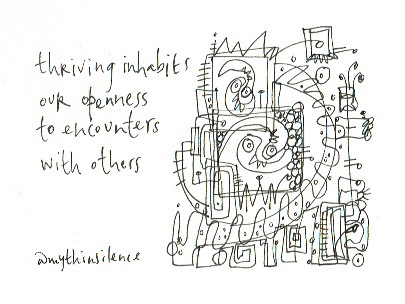 thriving inhabits
our openness
to encounters
with others
@mythinsilence